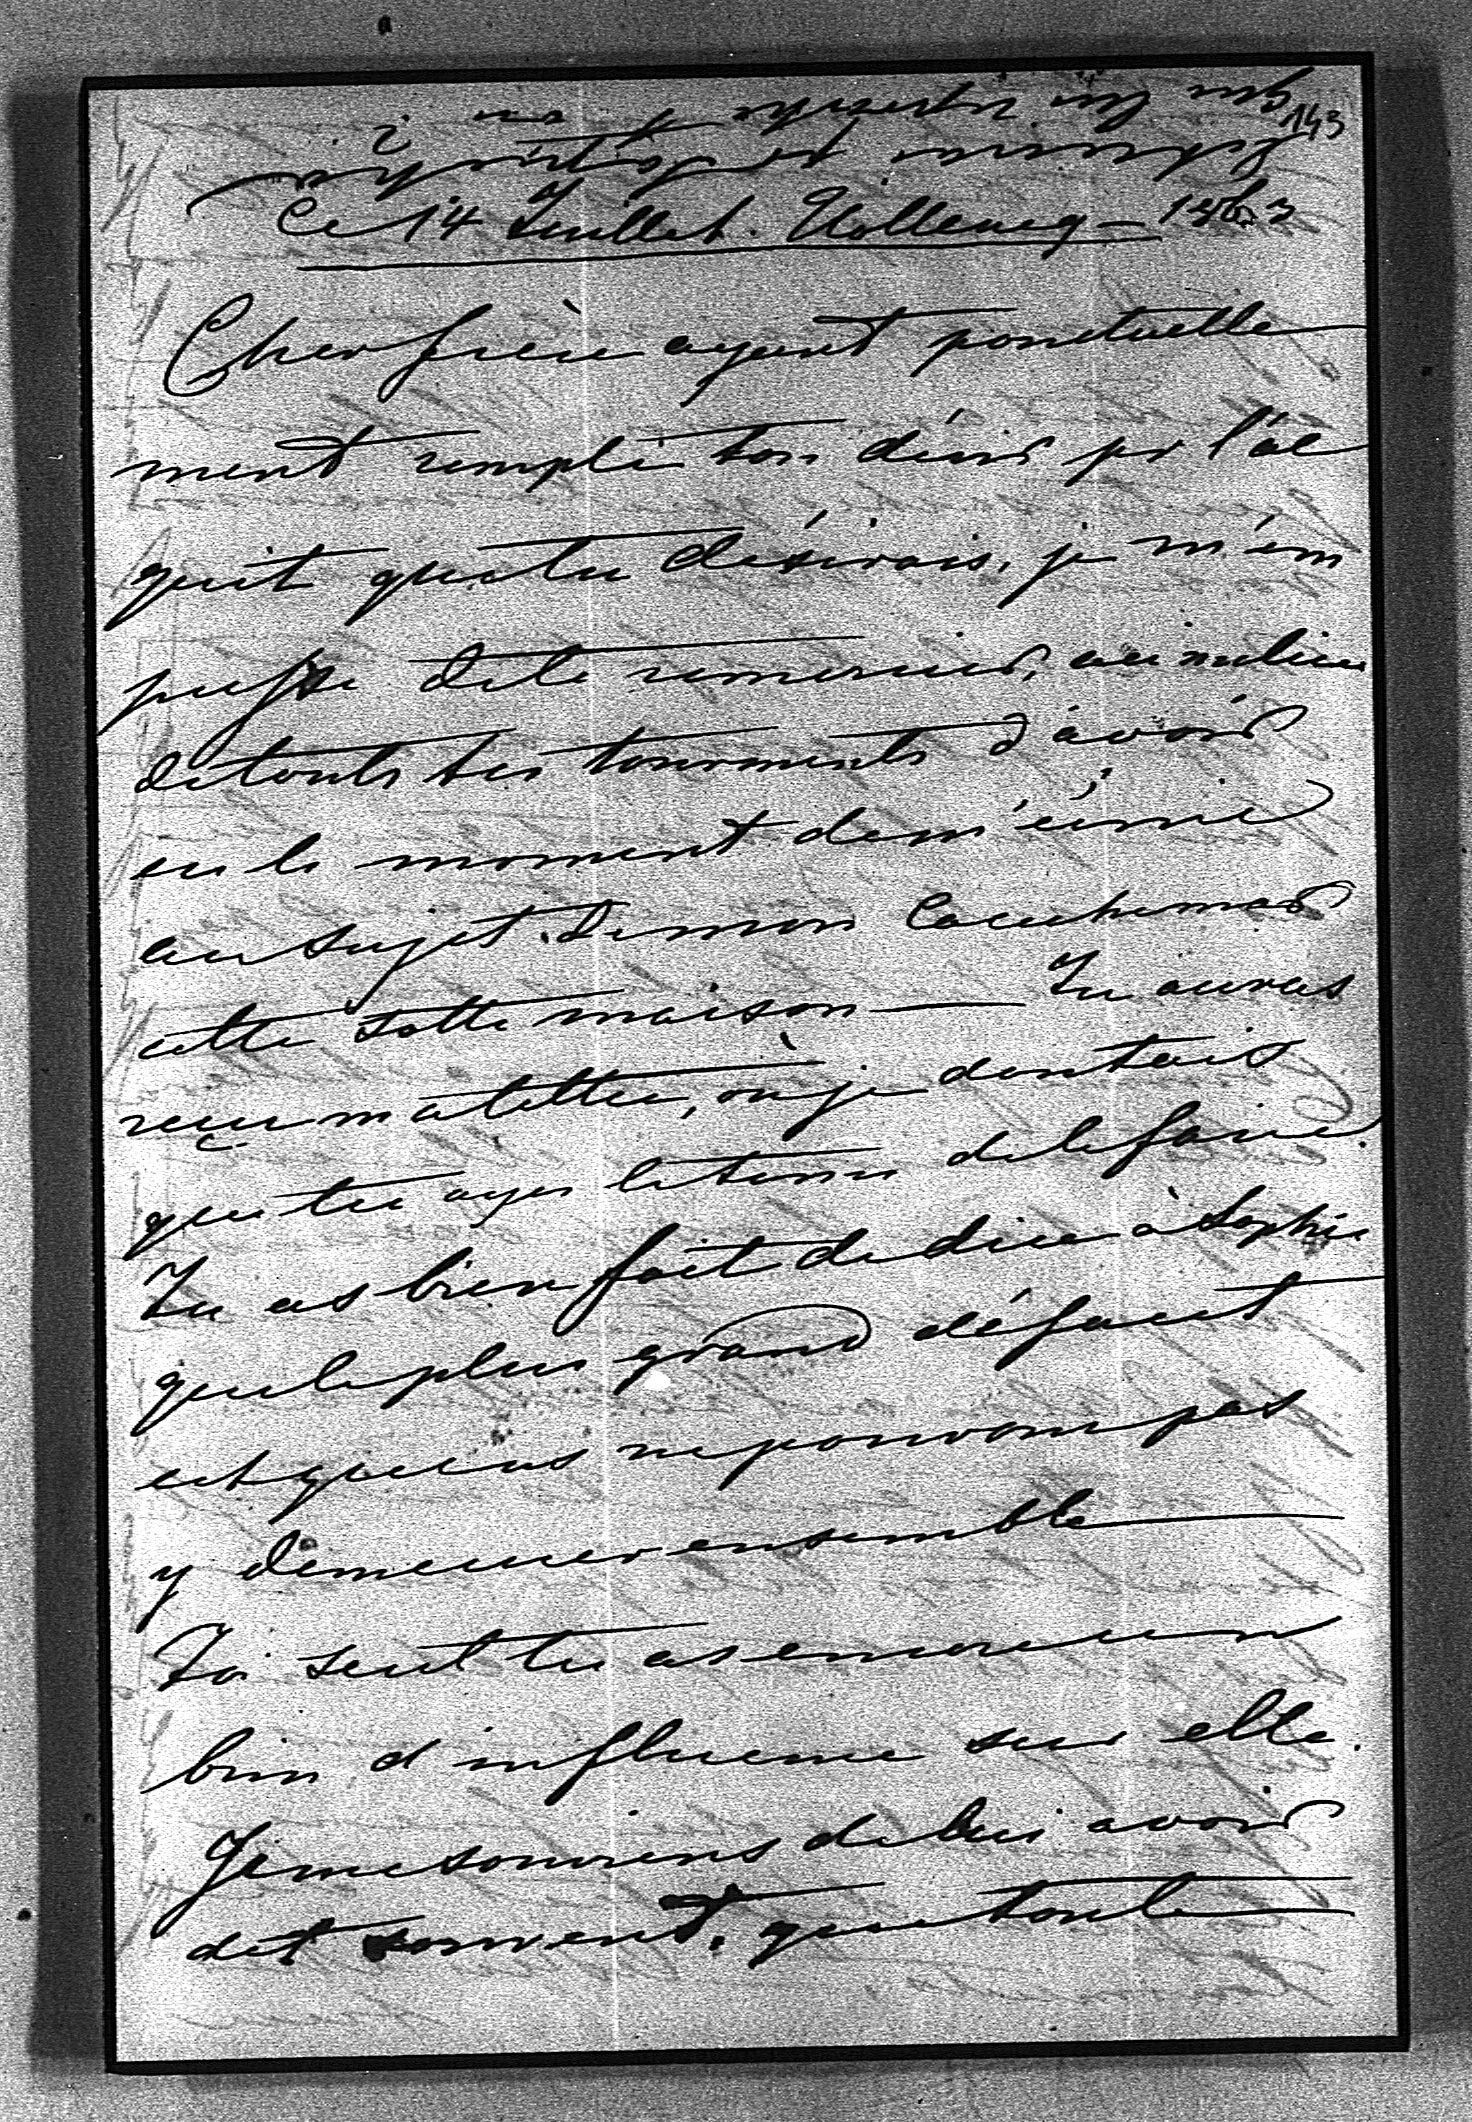 143
Ce 14 Juillet. 1863
Cher frère ayant ponctuelle
ment rempli ton désir pr l'ac
quit que tu desirais, je m'em
presse de te remercier, au milieu
de touts tes tourments d'avoir
eu le moment de m'écrire
au sujet de mon
cette sotte maison — Tu auras
reçu ma lettre, où je doutais
que tu ayes le tems de le faire.
Tu as bien fait de dire à Sophie
que le plus grand défaut
est que ns ne pouvons pas
y demeurer ensemble —
Toi seul tu as encore un
brin d'influence sur elle.
Je me souviens de lui avoir
dit souvent, que toute